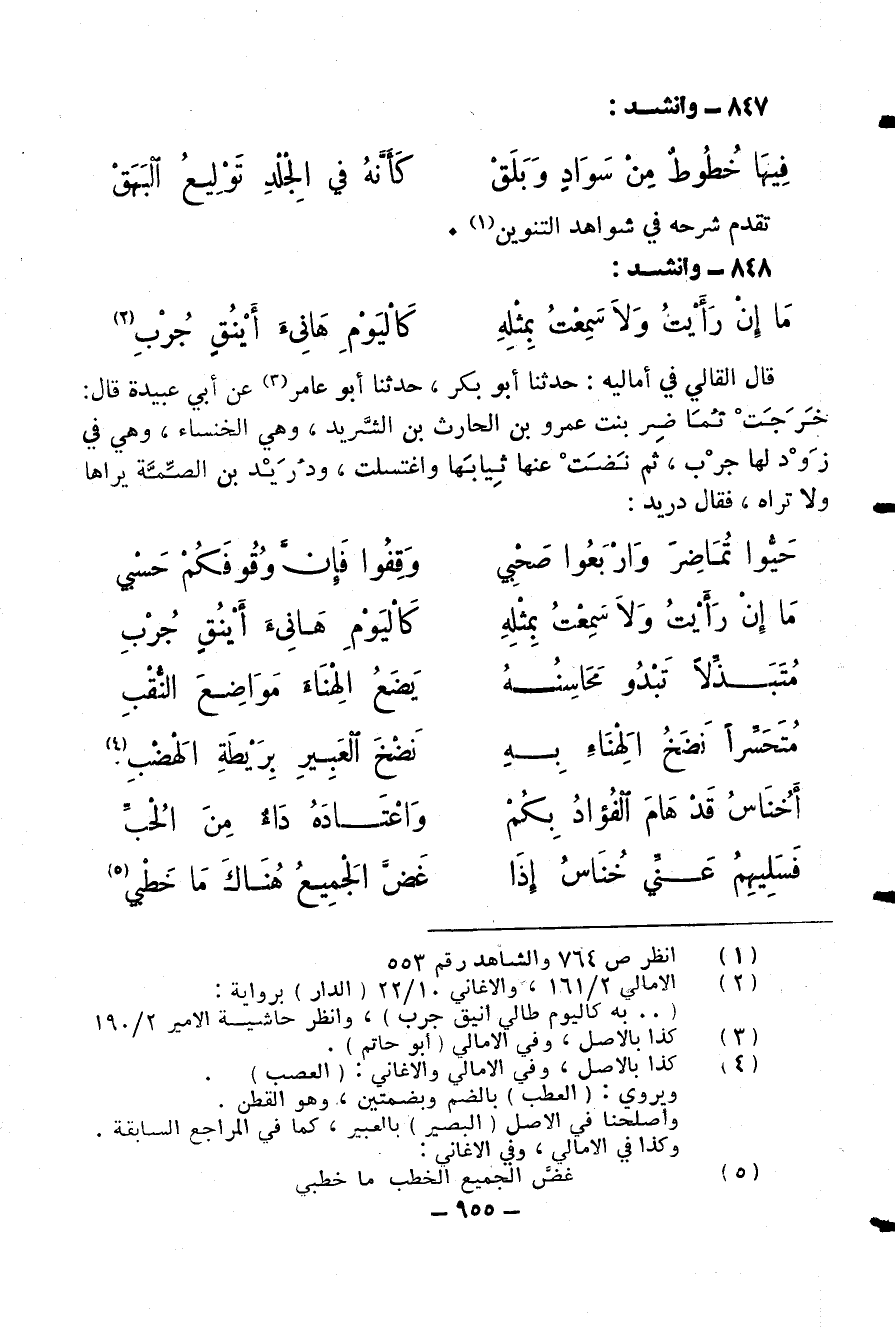 ٨٤٧ ــ وانشــد :
فِيهَا خُطُوطٌ مِنْ سَوَادٍ وَبَلَقْ كَأَنَّهُ في الِجْلْدِ تَوْلِيعُ اَلبَهَقْ
تقدم شرحه في شواهد التنوين(١) ٠
٨٤٨ ــ وانشــد :
مَا إِنْ رَأَيْتُ وَلاَ سَمِعْتُ بِمِثْلِهِ كَالْيَوْمِ هَانِىءَ أَيْنُقٍ جُرْبِ(٢)
قال القالي في أماليه : حدثنا أبو بكر ، حدثنا أبو عامر(٣) عن أبي عبيدة قال:
خَرَجَتْ تُمَاضِر بنت عمرو بن الحارث بن الشَّريد ، وهي الخنساء ، وهي في
زَوْد لها جرْب ، ثم نَضَتْ عنها ثيابَها واغتسلت ، ودُرَيْد بن الصِّمَّة يراها
ولا تراه ، فقال دريد :
حَيُّوا تُمَاضِرَ وَارْبَعُوا صَحْبِي وَقِفُوا فَإِنَّ وُقُوفَكُمْ حَسْبي
مَا إِنْ رَأَيْتُ وَلاَ سَمِعْتُ بِمِثْلِهِ كَالْيَوْمِ هَـانِىءَ أَيْنُقٍ جُرْبِ
مُتَبَـــذِّلاً تَبْدُو مَحَاسِنُـــهُ يَضَعُ الِهْنَاءَ مَوَاضِـعَ النُّقْبِ
مُتَحَسِّراً نَضَخُ الِهْنَاءِ بِـــهِ نَضْخَ اَلعَبِيرِ بِرَيْطَةِ الَهضْبِ(٤)
أَخُنَاسُ قَدْ هَامَ اَلفُؤَادُ بِكُمْ وَاعْتَـــادَهُ دَاءٌ مِنَ الُحْبِّ
فَسَلِيهِمُ عَـــنِّي خُنَاسُ إِذَا غَضَّ الَجْمِيعُ هُنَـاكَ مَا خَطْبي(٥)
(١) انظر ص ٧٦٤ والشاهد رقم ٥٥٣
(٢) الامالي ١٦١/٢ ، والاغاني ٢٢/١٠ ( الدار ) برواية :
( ٠٠ به كاليوم طالي انيق جرب ) ، وانظر حاشيــة الامير ١٩٠/٢
(٣) كذا بالاصل ، وفي الامالي ( أبو حاتم ) .
(٤) كذا بالاصل ، وفي الامالي والاغاني : ( العصب ) .
ويروي : ( العطب ) بالضم وبضمتين ، وهو القطن .
وأصلحنا في الاصل ( البصير ) باالعبير ، كما في المراجع السابقة .
وكذا في الامالي ، وفي الاغاني :
(٥) غضَّ الجميع الخطب ما خطبي
ــ ٩٥٥ ــ